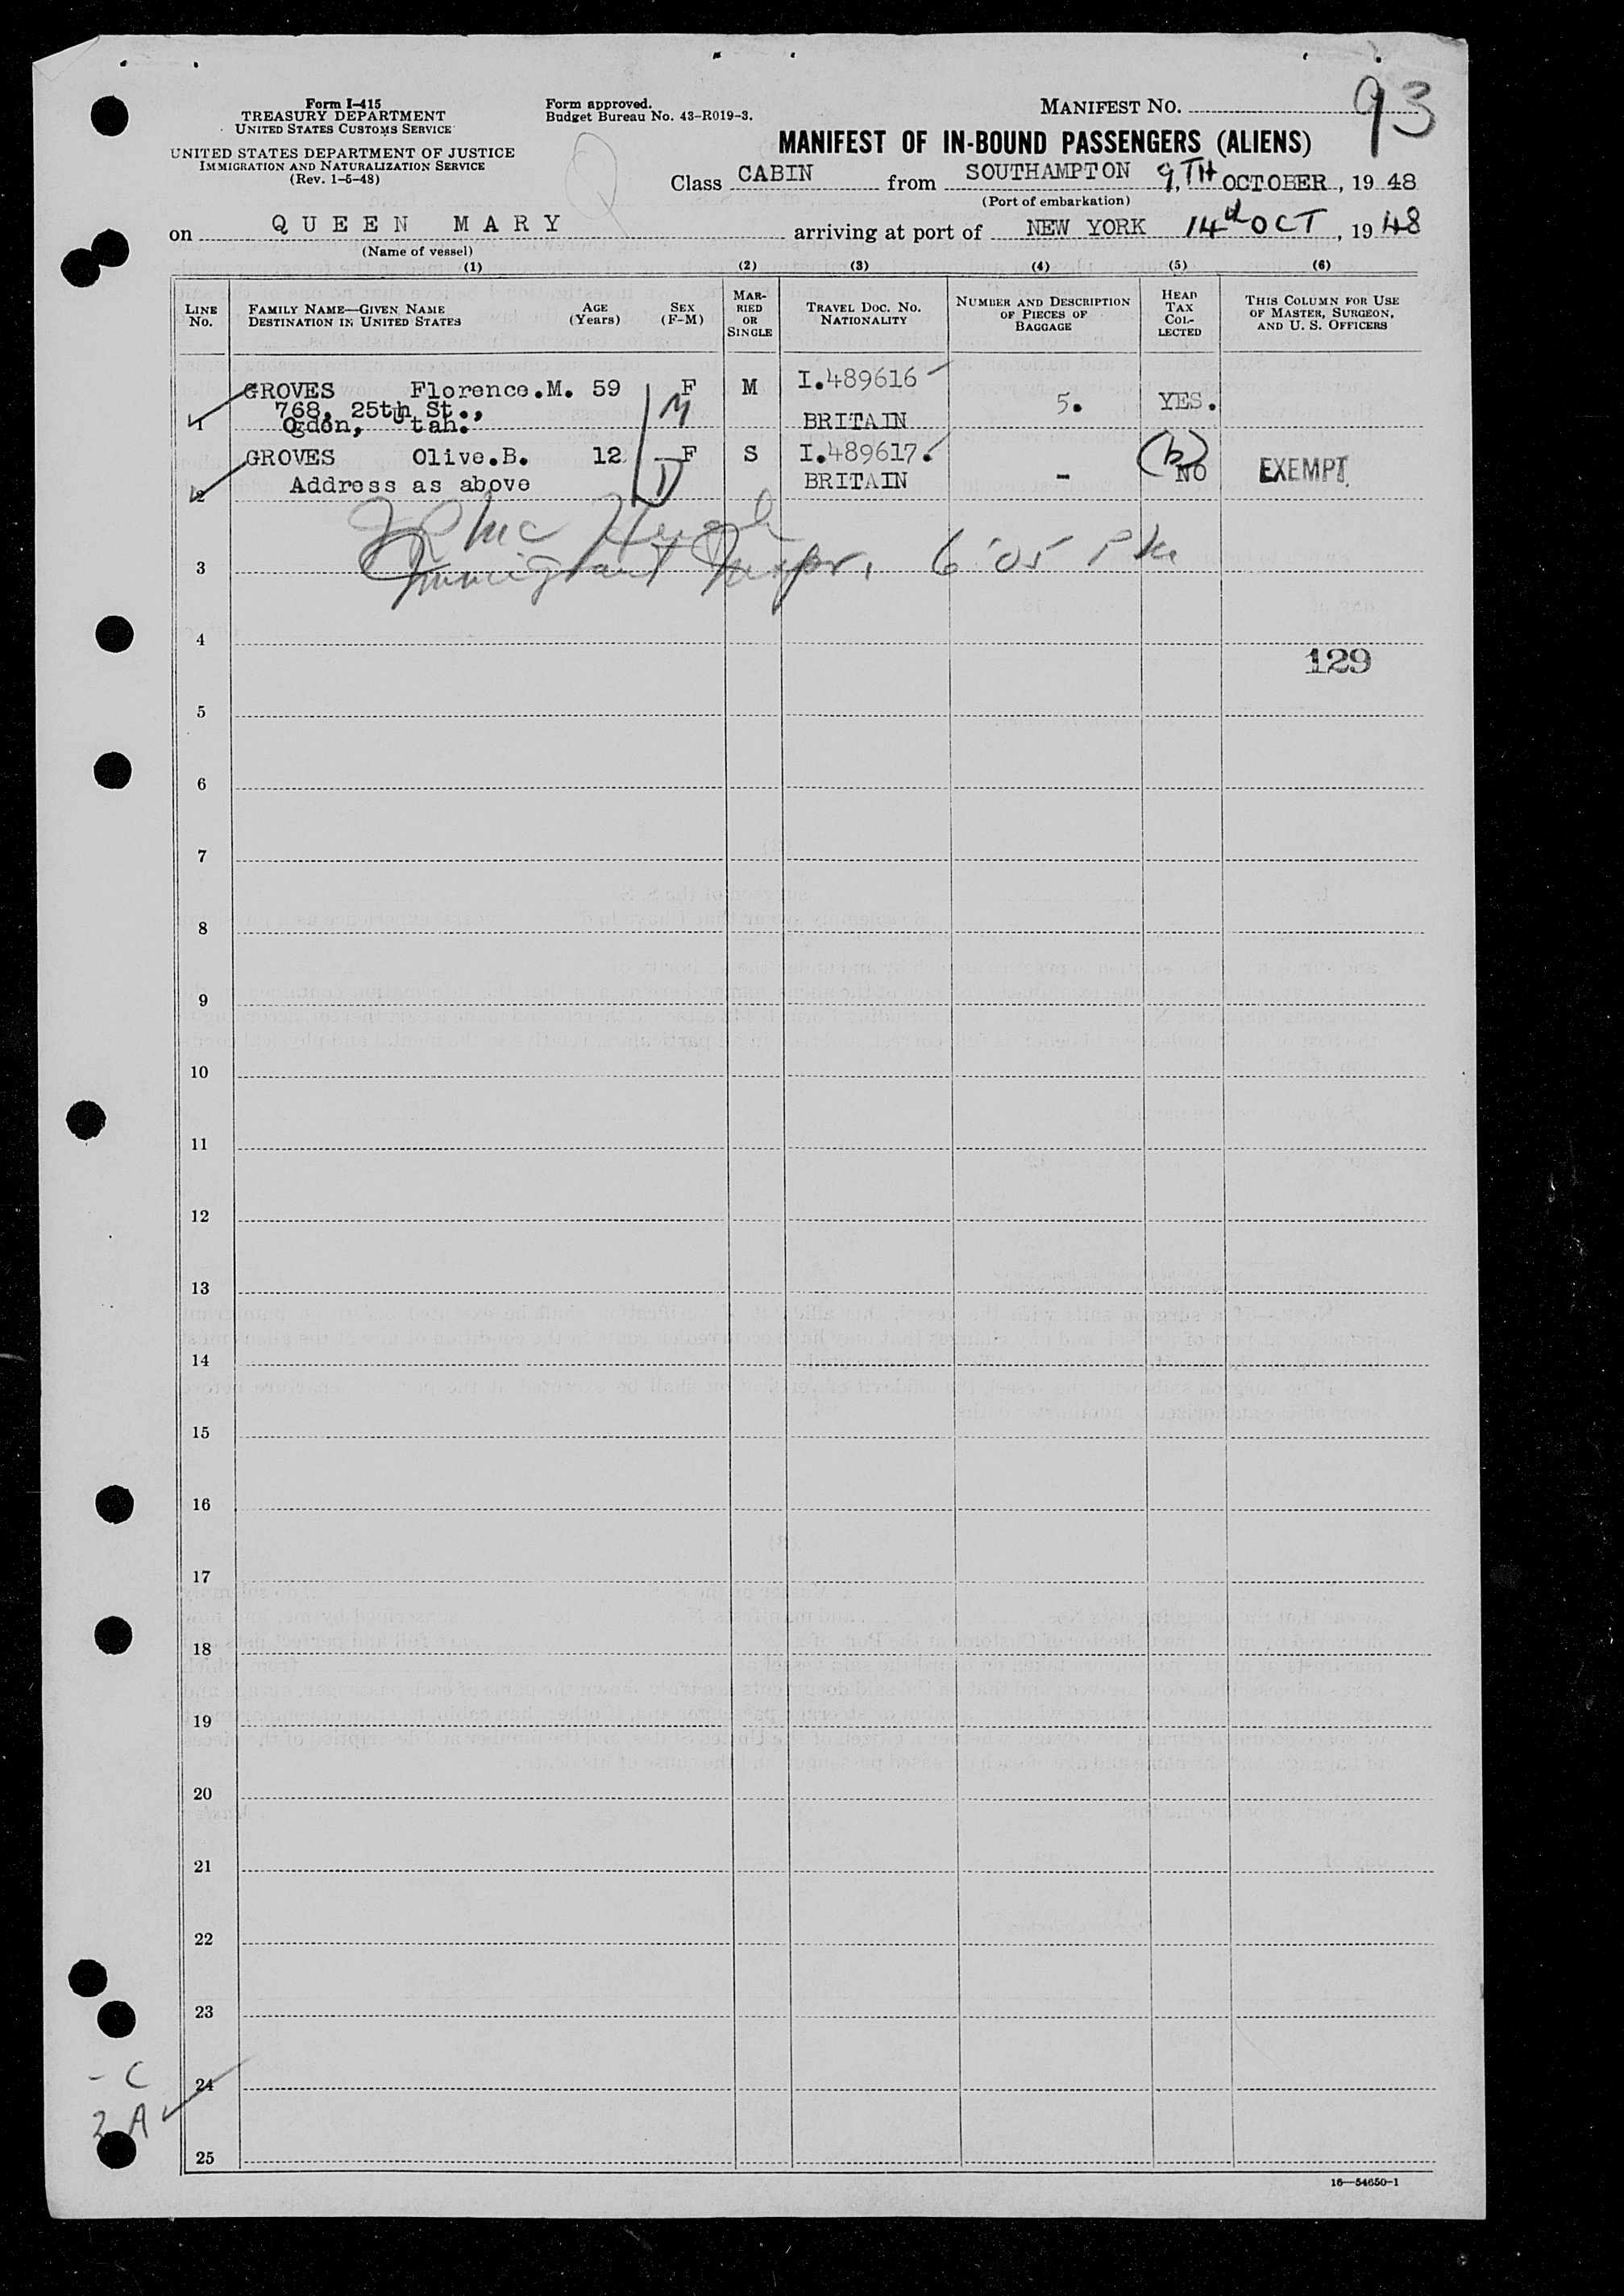 93
Form I-415
TREASURY DEPARTMENT
UNITED STATES CUSTOMS SERVICE
UNITED STATES DEPARTMENT OF JUSTICE
IMMIGRATION AND NATURALIZATION SERVICE
(Rev. 1-5-48)
Form approved.
Budget Bureau No. 43-R019-3.
MANIFEST NO.
MANIFEST OF IN-BOUND PASSENGERS (ALIENS)
Q
Class CABIN from SOUTHAMPTON 9,TH OCTOBER, 19 48
(Port of embarkation)
on QUEEN MARY arriving at port of NEW YORK 14th OCT, 19 48
(Name of vessel)
(1) (2) (3) (4) (5) (6)
LINE No. FAMILY NAME—GIVEN NAME DESTINATION IN UNITED STATES AGE (Years) SEX (F-M) MARRIED OR SINGLE TRAVEL DOC. No. NATIONALITY NUMBER AND DESCRIPTION OF PIECES OF BAGGAGE HEAD TAX COLLECTED THIS COLUMN FOR USE OF MASTER, SURGEON, AND U. S. OFFICERS
GROVES Florence.M. 59 F M I.489616
768, 25th St., M 5. YES.
1 Ogden, Utah. BRITAIN
GROVES Olive.B. 12 F S I.489617. (b)
2 Address as above D BRITAIN - NO EXEMPT.
3 Immigrant Inspr. 6:05 PM
4
129
5
6
7
8
9
10
11
12
13
14
15
16
17
18
19
20
21
22
23
- C
24
2 A
25
16—54650-1